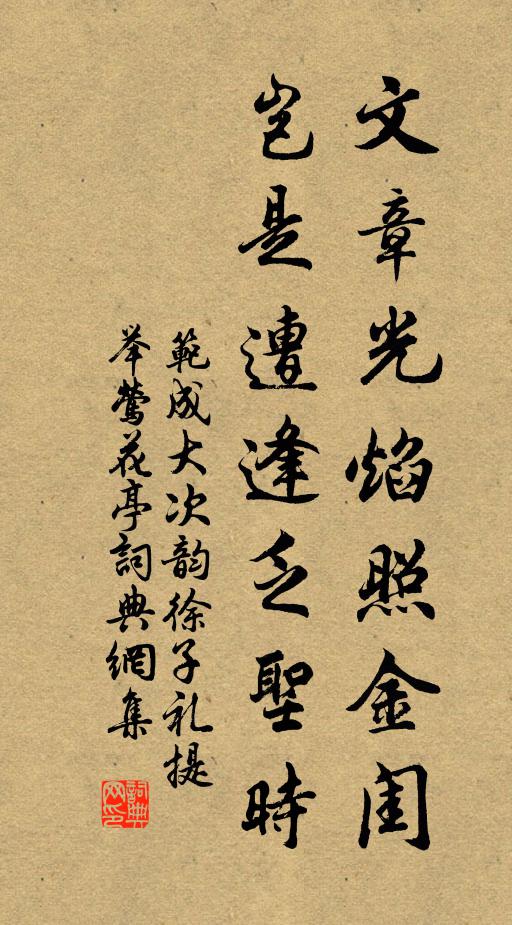 文章光焰照金闺
岂是遭逢乏聖時
範成大次韵徐子礼提
举鶯花亭詞典網集
詞典网印